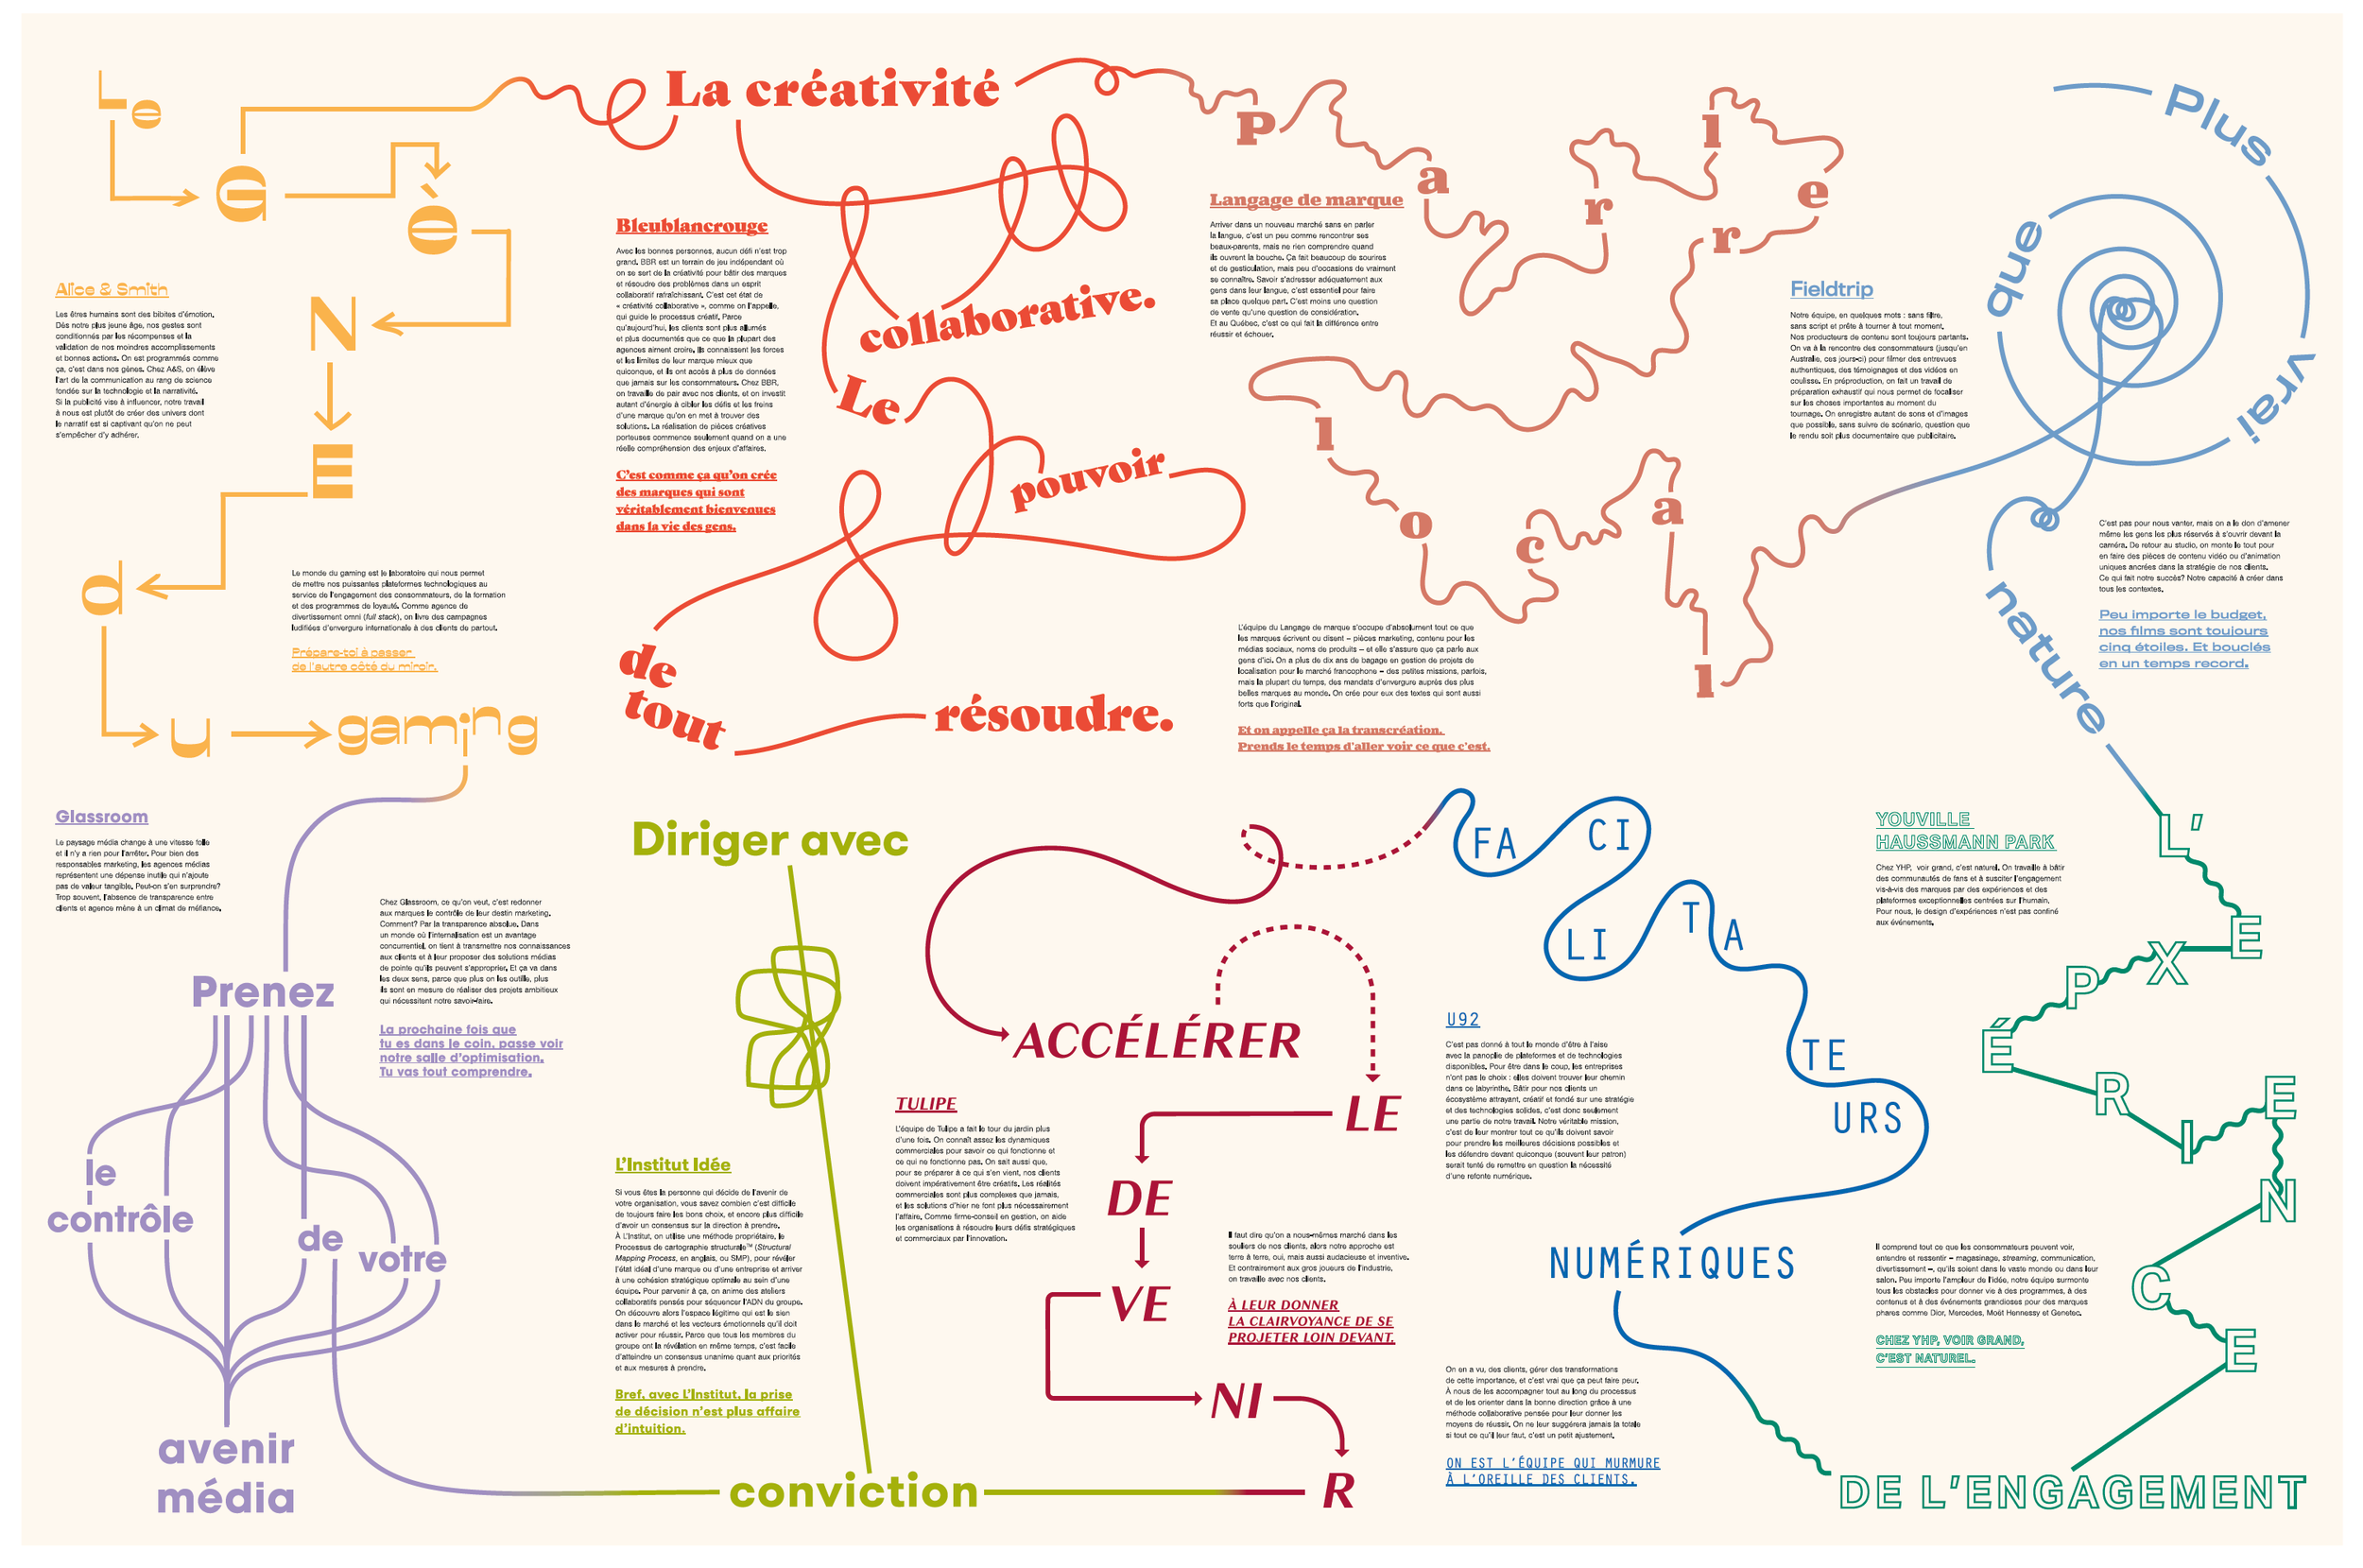 Le
GÉNE
du
gaming
Alice & Smith
Les êtres humains sont des bibites d'émotion.
Dès notre plus jeune âge, nos gestes sont
conditionnés par les récompenses et la
validation de nos moindres accomplissements
et bonnes actions. On est programmés comme
ça, c'est dans nos gènes. Chez A&S, on élève
l'art de la communication au rang de science
fondée sur la technologie et la narrativité.
Si la publicité vise à influencer, notre travail
à nous est plutôt de créer des univers dont
le narratif est si captivant qu'on ne peut
s'empêcher d'y adhérer.
Le monde du gaming est le laboratoire qui nous permet
de mettre nos puissantes plateformes technologiques au
service de l'engagement des consommateurs, de la formation
et des programmes de loyauté. Comme agence de
divertissement omni (full stack), on livre des campagnes
ludifiées d'envergure internationale à des clients de partout.
Prépare-toi à passer
de l'autre côté du miroir.
La créativité
collaborative.
Le
pouvoir
de
tout
résoudre.
Bleublancrouge
Avec les bonnes personnes, aucun défi n'est trop
grand. BBR est un terrain de jeu indépendant où
on se sert de la créativité pour bâtir des marques
et résoudre des problèmes dans un esprit
collaboratif rafraîchissant. C'est cet état de
« créativité collaborative », comme on l'appelle,
qui guide le processus créatif. Parce
qu'aujourd'hui, les clients sont plus allumés
et plus documentés que ce que la plupart des
agences aiment croire. Ils connaissent les forces
et les limites de leur marque mieux que
quiconque, et ils ont accès à plus de données
que jamais sur les consommateurs. Chez BBR,
on travaille de pair avec nos clients, et on investit
autant d'énergie à cibler les défis et les freins
d'une marque qu'on en met à trouver des
solutions. La réalisation de pièces créatives
porteuses commence seulement quand on a une
réelle compréhension des enjeux d'affaires.
C'est comme ça qu'on crée
des marques qui sont
véritablement bienvenues
dans la vie des gens.
Parrier
local
Langage de marque
Arriver dans un nouveau marché sans en parler
la langue, c'est un peu comme rencontrer ses
beaux-parents, mais ne rien comprendre quand
ils ouvrent la bouche. Ça fait beaucoup de sourires
et de gesticulation, mais peu d'occasions de vraiment
se connaître. Savoir s'adresser adéquatement aux
gens dans leur langue, c'est essentiel pour faire
sa place quelque part. C'est moins une question
de vente qu'une question de considération.
Et au Québec, c'est ce qui fait la différence entre
réussir et échouer.
L'équipe du Langage de marque s'occupe d'absolument tout ce que
les marques écrivent ou disent – pièces marketing, contenu pour les
médias sociaux, noms de produits – et elle s'assure que ça parle aux
gens d'ici. On a plus de dix ans de bagage en gestion de projets de
localisation pour le marché francophone – des petites missions, parfois,
mais la plupart du temps, des mandats d'envergure auprès des plus
belles marques au monde. On crée pour eux des textes qui sont aussi
forts que l'original.
Et on appelle ça la transcréation.
Prends le temps d'aller voir ce que c'est.
Plus
vrai
que
nature
Fieldtrip
Notre équipe, en quelques mots : sans filtre,
sans script et prête à tourner à tout moment.
Nos producteurs de contenu sont toujours partants.
On va à la rencontre des consommateurs (jusqu'en
Australie, ces jours-ci) pour filmer des entrevues
authentiques, des témoignages et des vidéos en
coulisse. En préproduction, on fait un travail de
préparation exhaustif qui nous permet de focaliser
sur les choses importantes au moment du
tournage. On enregistre autant de sons et d'images
que possible, sans suivre de scénario, question que
le rendu soit plus documentaire que publicitaire.
C'est pas pour nous vanter, mais on a le don d'amener
même les gens les plus réservés à s'ouvrir devant la
caméra. De retour au studio, on monte le tout pour
en faire des pièces de contenu vidéo ou d'animation
uniques ancrées dans la stratégie de nos clients.
Ce qui fait notre succès? Notre capacité à créer dans
tous les contextes.
Peu importe le budget,
nos films sont toujours
cinq étoiles. Et bouclés
en un temps record.
Glassroom
Le paysage média change à une vitesse folle
et il n'y a rien pour l'arrêter. Pour bien des
responsables marketing, les agences médias
représentent une dépense inutile qui n'ajoute
pas de valeur tangible. Peut-on s'en surprendre?
Trop souvent, l'absence de transparence entre
clients et agence mène à un climat de méfiance.
Chez Glassroom, ce qu'on veut, c'est redonner
aux marques le contrôle de leur destin marketing.
Comment? Par la transparence absolue. Dans
un monde où l'internalisation est un avantage
concurrentiel, on tient à transmettre nos connaissances
aux clients et à leur proposer des solutions médias
de pointe qu'ils peuvent s'approprier. Et ça va dans
les deux sens, parce que plus on les outille, plus
ils sont en mesure de réaliser des projets ambitieux
qui nécessitent notre savoir-faire.
La prochaine fois que
tu es dans le coin, passe voir
notre salle d'optimisation.
Tu vas tout comprendre.
Prenez
le
contrôle
de
votre
avenir
média
Diriger avec
conviction
L'Institut Idée
Si vous êtes la personne qui décide de l'avenir de
votre organisation, vous savez combien c'est difficile
de toujours faire les bons choix, et encore plus difficile
d'avoir un consensus sur la direction à prendre.
À L'Institut, on utilise une méthode propriétaire, le
Processus de cartographie structurale™ (Structural
Mapping Process, en anglais, ou SMP), pour révéler
l'état idéal d'une marque ou d'une entreprise et arriver
à une cohésion stratégique optimale au sein d'une
équipe. Pour parvenir à ça, on anime des ateliers
collaboratifs pensés pour séquencer l'ADN du groupe.
On découvre alors l'espace légitime qui est le sien
dans le marché et les vecteurs émotionnels qu'il doit
activer pour réussir. Parce que tous les membres du
groupe ont la révélation en même temps, c'est facile
d'atteindre un consensus unanime quant aux priorités
et aux mesures à prendre.
Bref, avec L'Institut, la prise
de décision n'est plus affaire
d'intuition.
ACCÉLÉRER
LE
DE
VE
NI
R
TULIPE
L'équipe de Tulipe a fait le tour du jardin plus
d'une fois. On connaît assez les dynamiques
commerciales pour savoir ce qui fonctionne et
ce qui ne fonctionne pas. On sait aussi que,
pour se préparer à ce qui s'en vient, nos clients
doivent impérativement être créatifs. Les réalités
commerciales sont plus complexes que jamais,
et les solutions d'hier ne font plus nécessairement
l'affaire. Comme firme-conseil en gestion, on aide
les organisations à résoudre leurs défis stratégiques
et commerciaux par l'innovation.
Il faut dire qu'on a nous-mêmes marché dans les
souliers de nos clients, alors notre approche est
terre à terre, oui, mais aussi audacieuse et inventive.
Et contrairement aux gros joueurs de l'industrie,
on travaille avec nos clients.
À LEUR DONNER
LA CLAIRVOYANCE DE SE
PROJETER LOIN DEVANT.
FA
CI
LI
T
A
TE
URS
NUMÉRIQUES
U92
C'est pas donné à tout le monde d'être à l'aise
avec la panoplie de plateformes et de technologies
disponibles. Pour être dans le coup, les entreprises
n'ont pas le choix : elles doivent trouver leur chemin
dans ce labyrinthe. Bâtir pour nos clients un
écosystème attrayant, créatif et fondé sur une stratégie
et des technologies solides, c'est donc seulement
une partie de notre travail. Notre véritable mission,
c'est de leur montrer tout ce qu'ils doivent savoir
pour prendre les meilleures décisions possibles et
les défendre devant quiconque (souvent leur patron)
serait tenté de remettre en question la nécessité
d'une refonte numérique.
On en a vu, des clients, gérer des transformations
de cette importance, et c'est vrai que ça peut faire peur.
À nous de les accompagner tout au long du processus
et de les orienter dans la bonne direction grâce à une
méthode collaborative pensée pour leur donner les
moyens de réussir. On ne leur suggérera jamais la totale
si tout ce qu'il leur faut, c'est un petit ajustement.
ON EST L'ÉQUIPE QUI MURMURE
À L'OREILLE DES CLIENTS.
YOUVILLE
HAUSSMANN PARK
Chez YHP, voir grand, c'est naturel. On travaille à bâtir
des communautés de fans et à susciter l'engagement
vis-à-vis des marques par des expériences et des
plateformes exceptionnelles centrées sur l'humain.
Pour nous, le design d'expériences n'est pas confiné
aux événements.
Il comprend tout ce que les consommateurs peuvent voir,
entendre et ressentir – magasinage, streaming, communication,
divertissement –, qu'ils soient dans le vaste monde ou dans leur
salon. Peu importe l'ampleur de l'idée, notre équipe surmonte
tous les obstacles pour donner vie à des programmes, à des
contenus et à des événements grandioses pour des marques
phares comme Dior, Mercedes, Moët Hennessy et Genetec.
CHEZ YHP, VOIR GRAND,
C'EST NATUREL.
L'EXPÉRIENCE
DE L'ENGAGEMENT